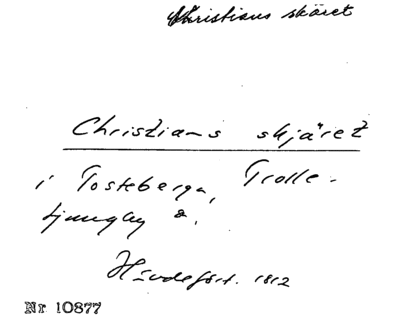 Christians skäret
Christians skjäret
i Tosteberga, Trolle-
ljungby s.
Hävdefört. 1812
Nr 10877